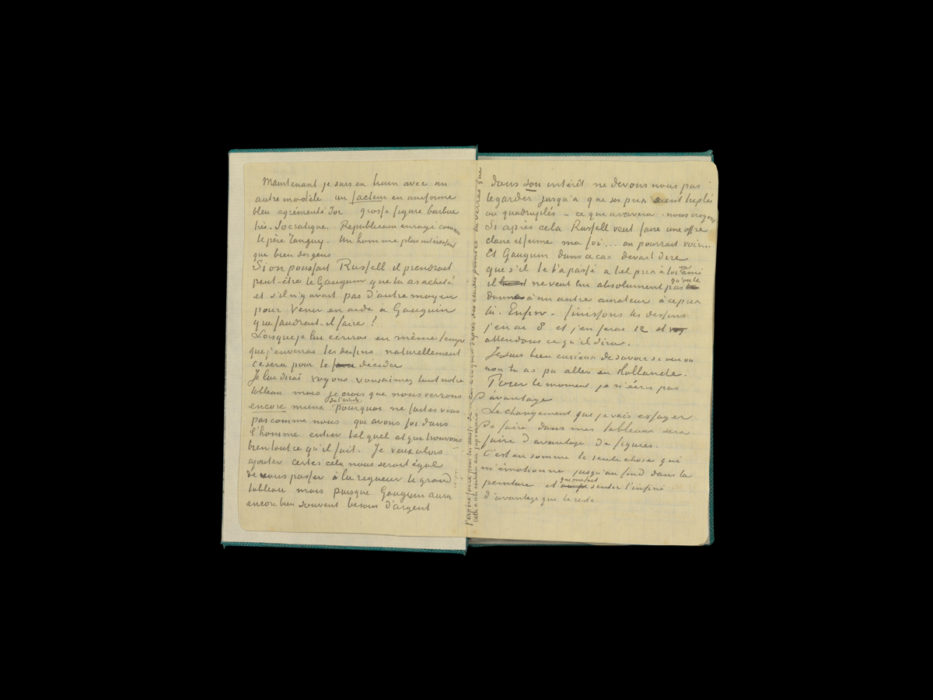 Maintenant je suis en train avec un
autre modèle un facteur en uniforme
bleu agrémenté d'or grosse figure barbue
très Socratique. Republicain enragé comme
le père Tanguy. Un homme plus intéressant
que bien des gens
Si on poussait Russell il prendrait
peut-être le Gauguin que tu as acheté
et s'il n'y avait pas d'autre moyen
pour venir en aide à Gauguin
que faudrait-il faire!
Lorsque je lui écrirai en même temps
que j'enverrai les dessins naturellement
ce sera pour le decider
Je lui dirai voyons vous aimez tant notre
tableau mais je crois que nous verrons
encore mieux de l'artiste pourquoi ne faites vous
pas comme nous qui avons foi dans
l'homme entier tel quel et qui trouvons
bien tout ce qu'il fait. Je veux alors
ajouter certes cela nous serait égal
de vous passer à la rigueur le grand
tableau mais puisque Gauguin aura
encore bien souvent besoin d'argent
dans son intérêt ne devons nous pas
le garder jusqu'à que ses prix soient triplés
ou quadruplés – ce que arrivera nous croyons
Si après cela Russell veut faire une offre
claire et ferme ma foi .... on pourrait voir
Et Gauguin dans ce cas devait dire
que s'il te l'a passé a tel prix à toi son ami
il ne veut lui absolument pas qu'on le
donne à un autre amateur à ce prix
là. Enfin. finissons les dessins
j'en ai 8 et j'en ferai 12 et
attendons ce qu'il dira.
Je suis bien curieux de savoir si oui ou
non tu as pu aller en Hollande.
Pour le moment je n'écris pas
d'avantage
Le changement que je vais essayer
de faire dans mes tableaux sera
faire d'avantage de figures.
C'est en somme la seule chose qui
m'émotionne jusqu'au fond dans la
peinture et qui me fait sentir l'infini
d'avantage que le reste